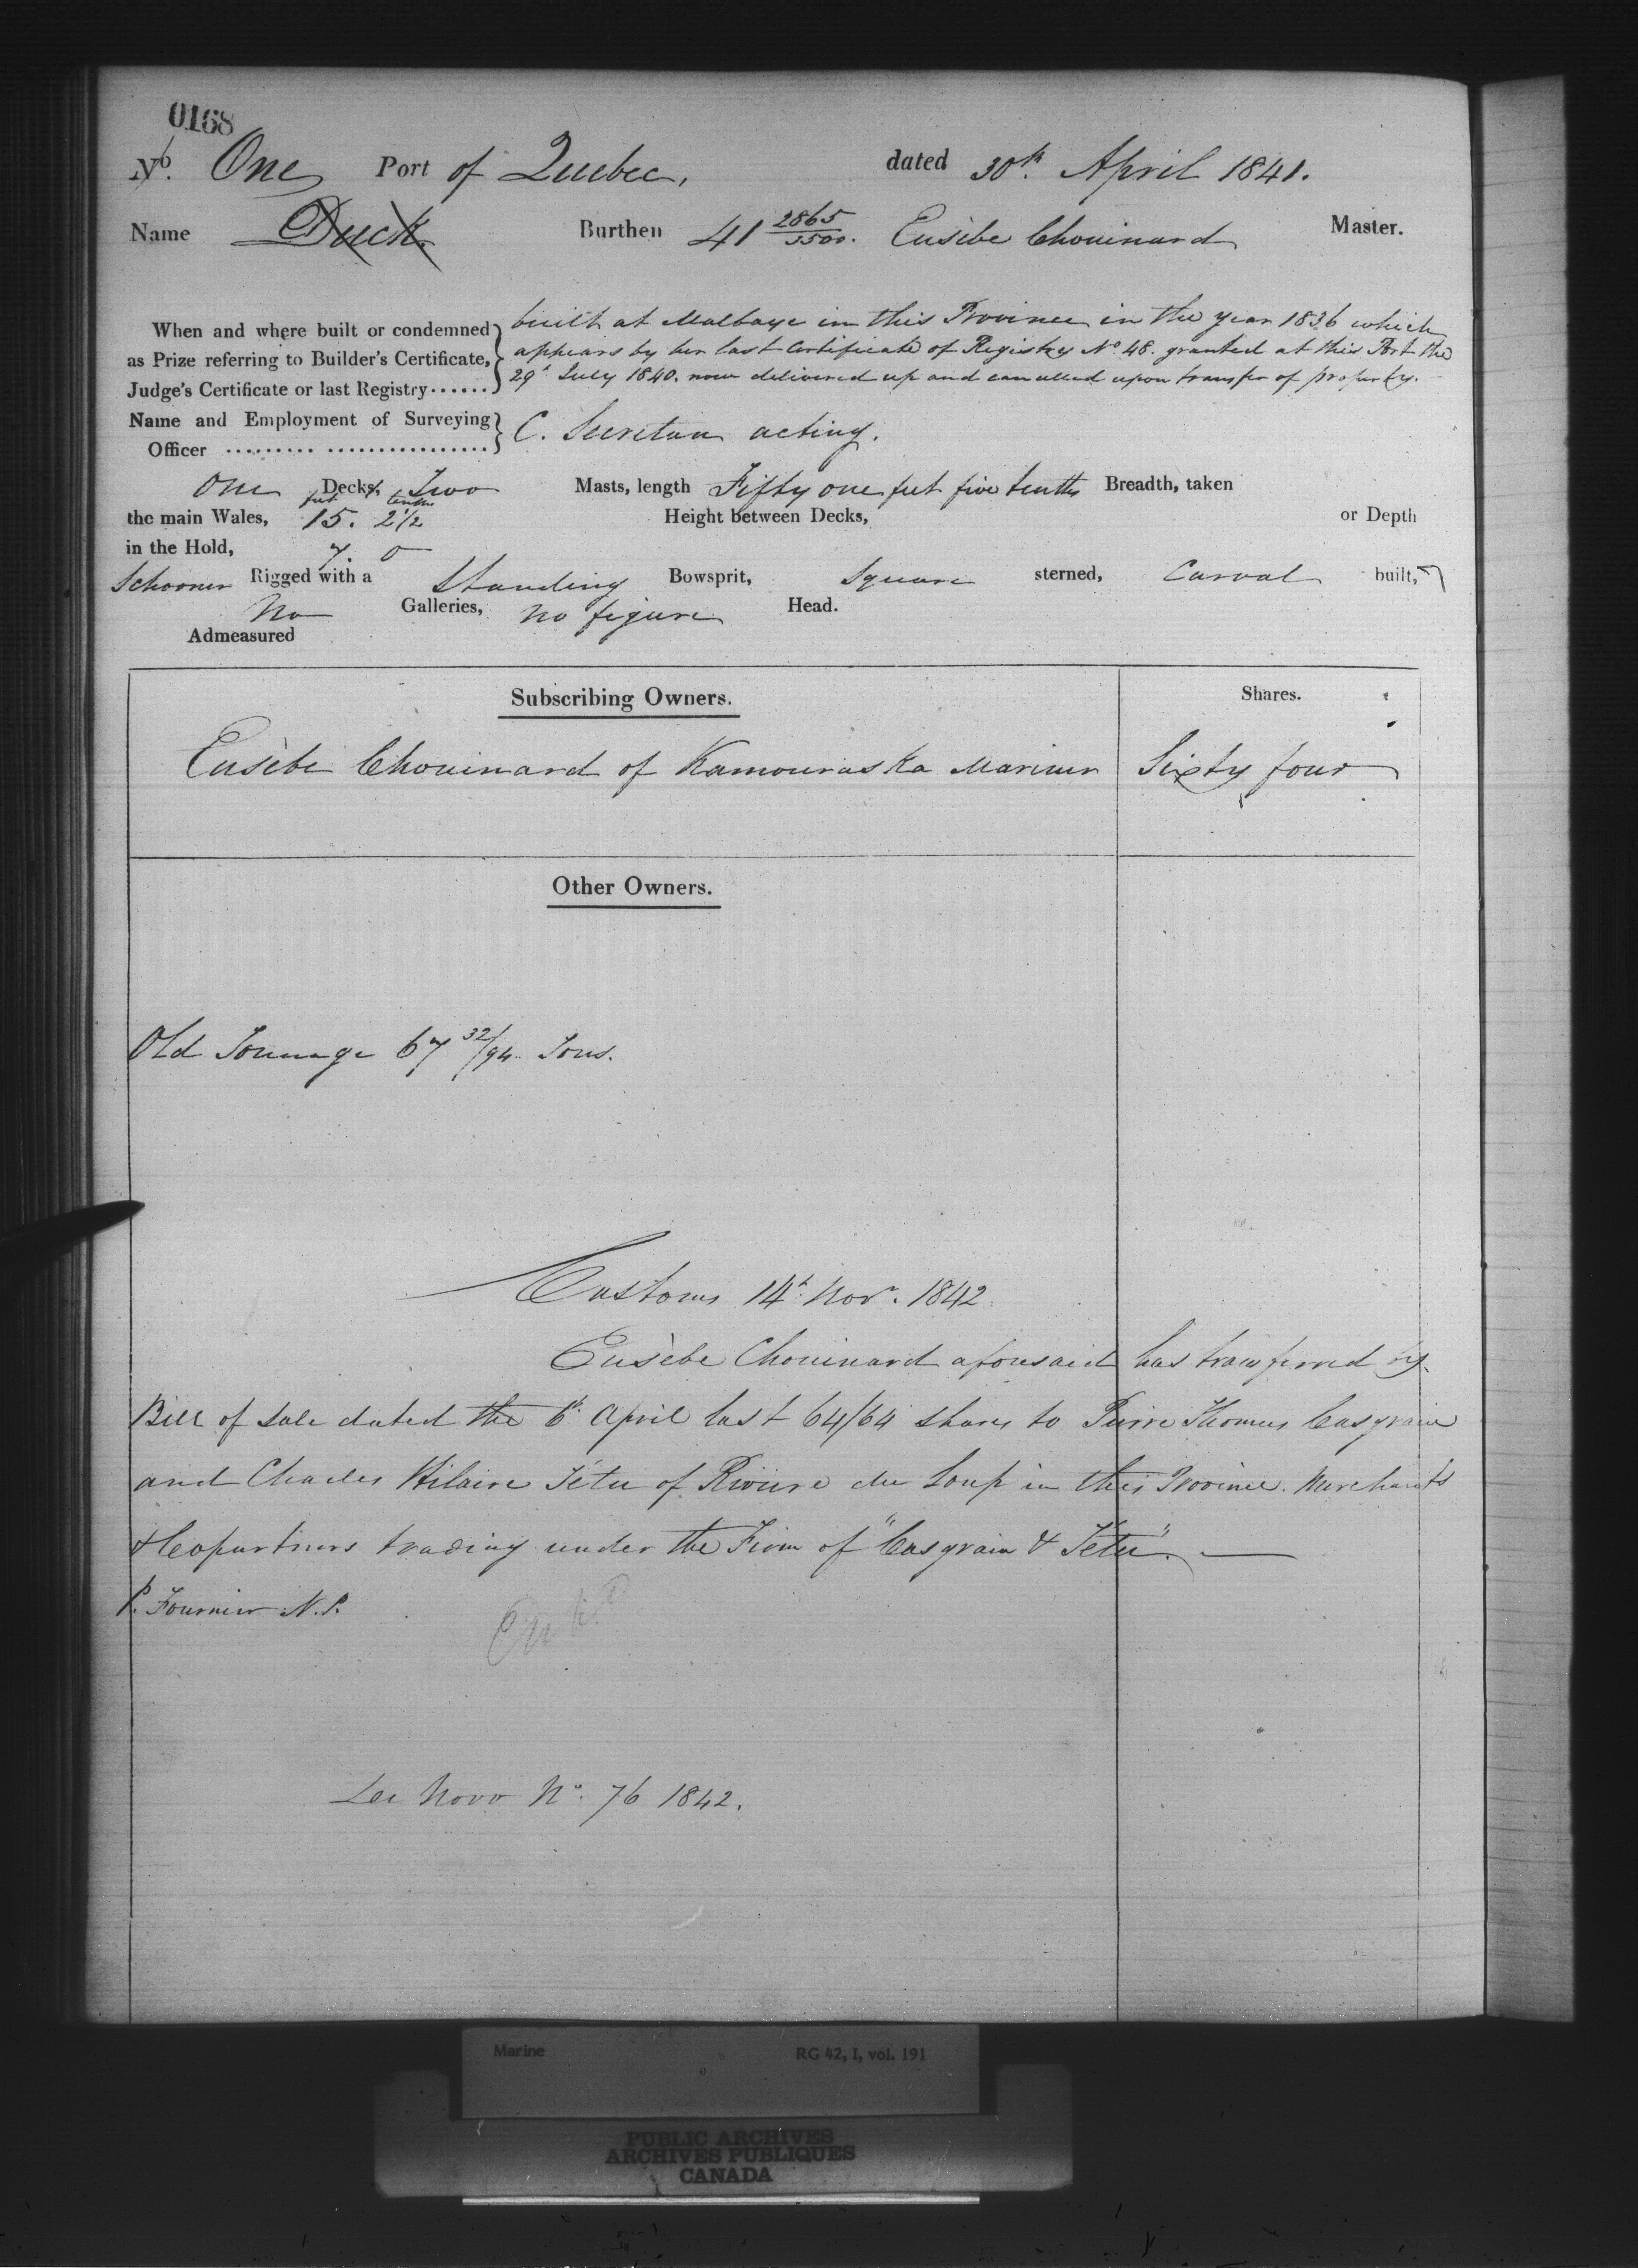 0168
No. One Port of Quebec, dated 30th April 1841.
Name Duck Burthen 41 2865/3500. Eusèbe Chouinard Master.
When and where built or condemned as Prize referring to Builder's Certificate, Judge's Certificate or last Registry......
built at Malbaye in this Province in the year 1836 which
appears by her last Certificate of Registry No. 48. granted at this Port the
29th July 1840. now delivered up and cancelled upon transfer of property.
Name and Employment of Surveying Officer
C. Secretan acting.
One Decks, & Two Masts, length Fifty one feet five tenths Breadth, taken
feet tenths
the main Wales, 15. 2 1/2 Height between Decks, or Depth
in the Hold, 7. 0
Schooner Rigged with a Standing Bowsprit, Square sterned, Carval built,
No Galleries, no figure Head.
Admeasured
Subscribing Owners. Shares.
Eusèbe Chouinard of Kamouraska Mariner Sixty four
Other Owners.
Old Tonnage 67 32/94 Tons.
Customs 14th Novr. 1842.
Eusèbe Chouinard aforesaid has transferred by
Bill of Sale dated the 6th April last 64/64 shares to Pierre Thomas Casgrain
and Charles Hilaire Tétu of Riviere du Loup in this Province. Merchants
& Copartners trading under the Firm of "Casgrain & Tétu".
P. Fournier N.P.
de Novo No. 76 1842.
Marine RG 42, I, vol. 191
PUBLIC ARCHIVES
ARCHIVES PUBLIQUES
CANADA